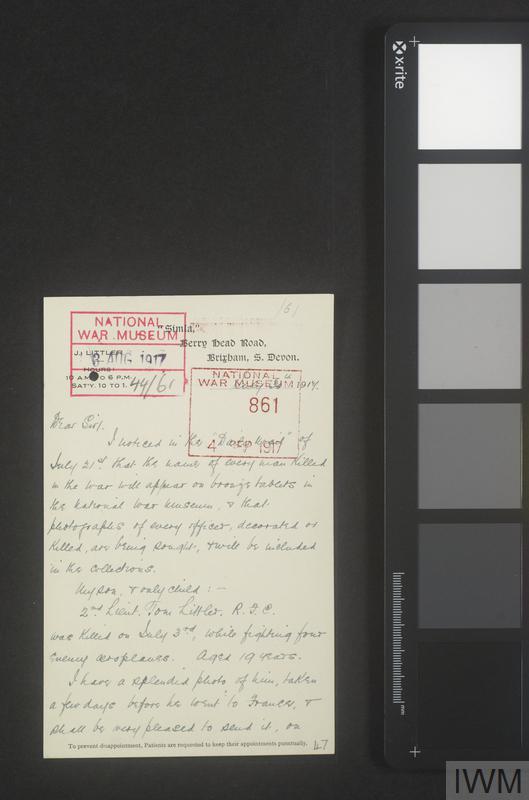 161
NATIONAL
WAR MUSEUM
"Simla,"
Berry Head Road,
Brixham, S. Devon.
J. LITTLER
AUG 1917
HOURS:
10 A.M. TO 6 P.M.
SAT'Y. 10 TO 1.
44/61
1917.
NATIONAL
WAR MUSEUM
861
4 SEP 1917
Dear Sir,
I noticed in the "Daily Mail" of
July 21st that the name of every man killed
in the war will appear on bronze tablets in
the National War Museum, & that
photographs of every officer, decorated or
killed, are being sought, & will be included
in the collections.
My son, & only child : —
2nd Lieut. Tom Littler. R. F. C.
was killed on July 3rd, while fighting four
enemy aeroplanes. Aged 19 years.
I have a splendid photo of him, taken
a few days before he went to France, &
shall be very pleased to send it, on
To prevent disappointment, Patients are requested to keep their appointments punctually.
47
x-rite
mm
IWM